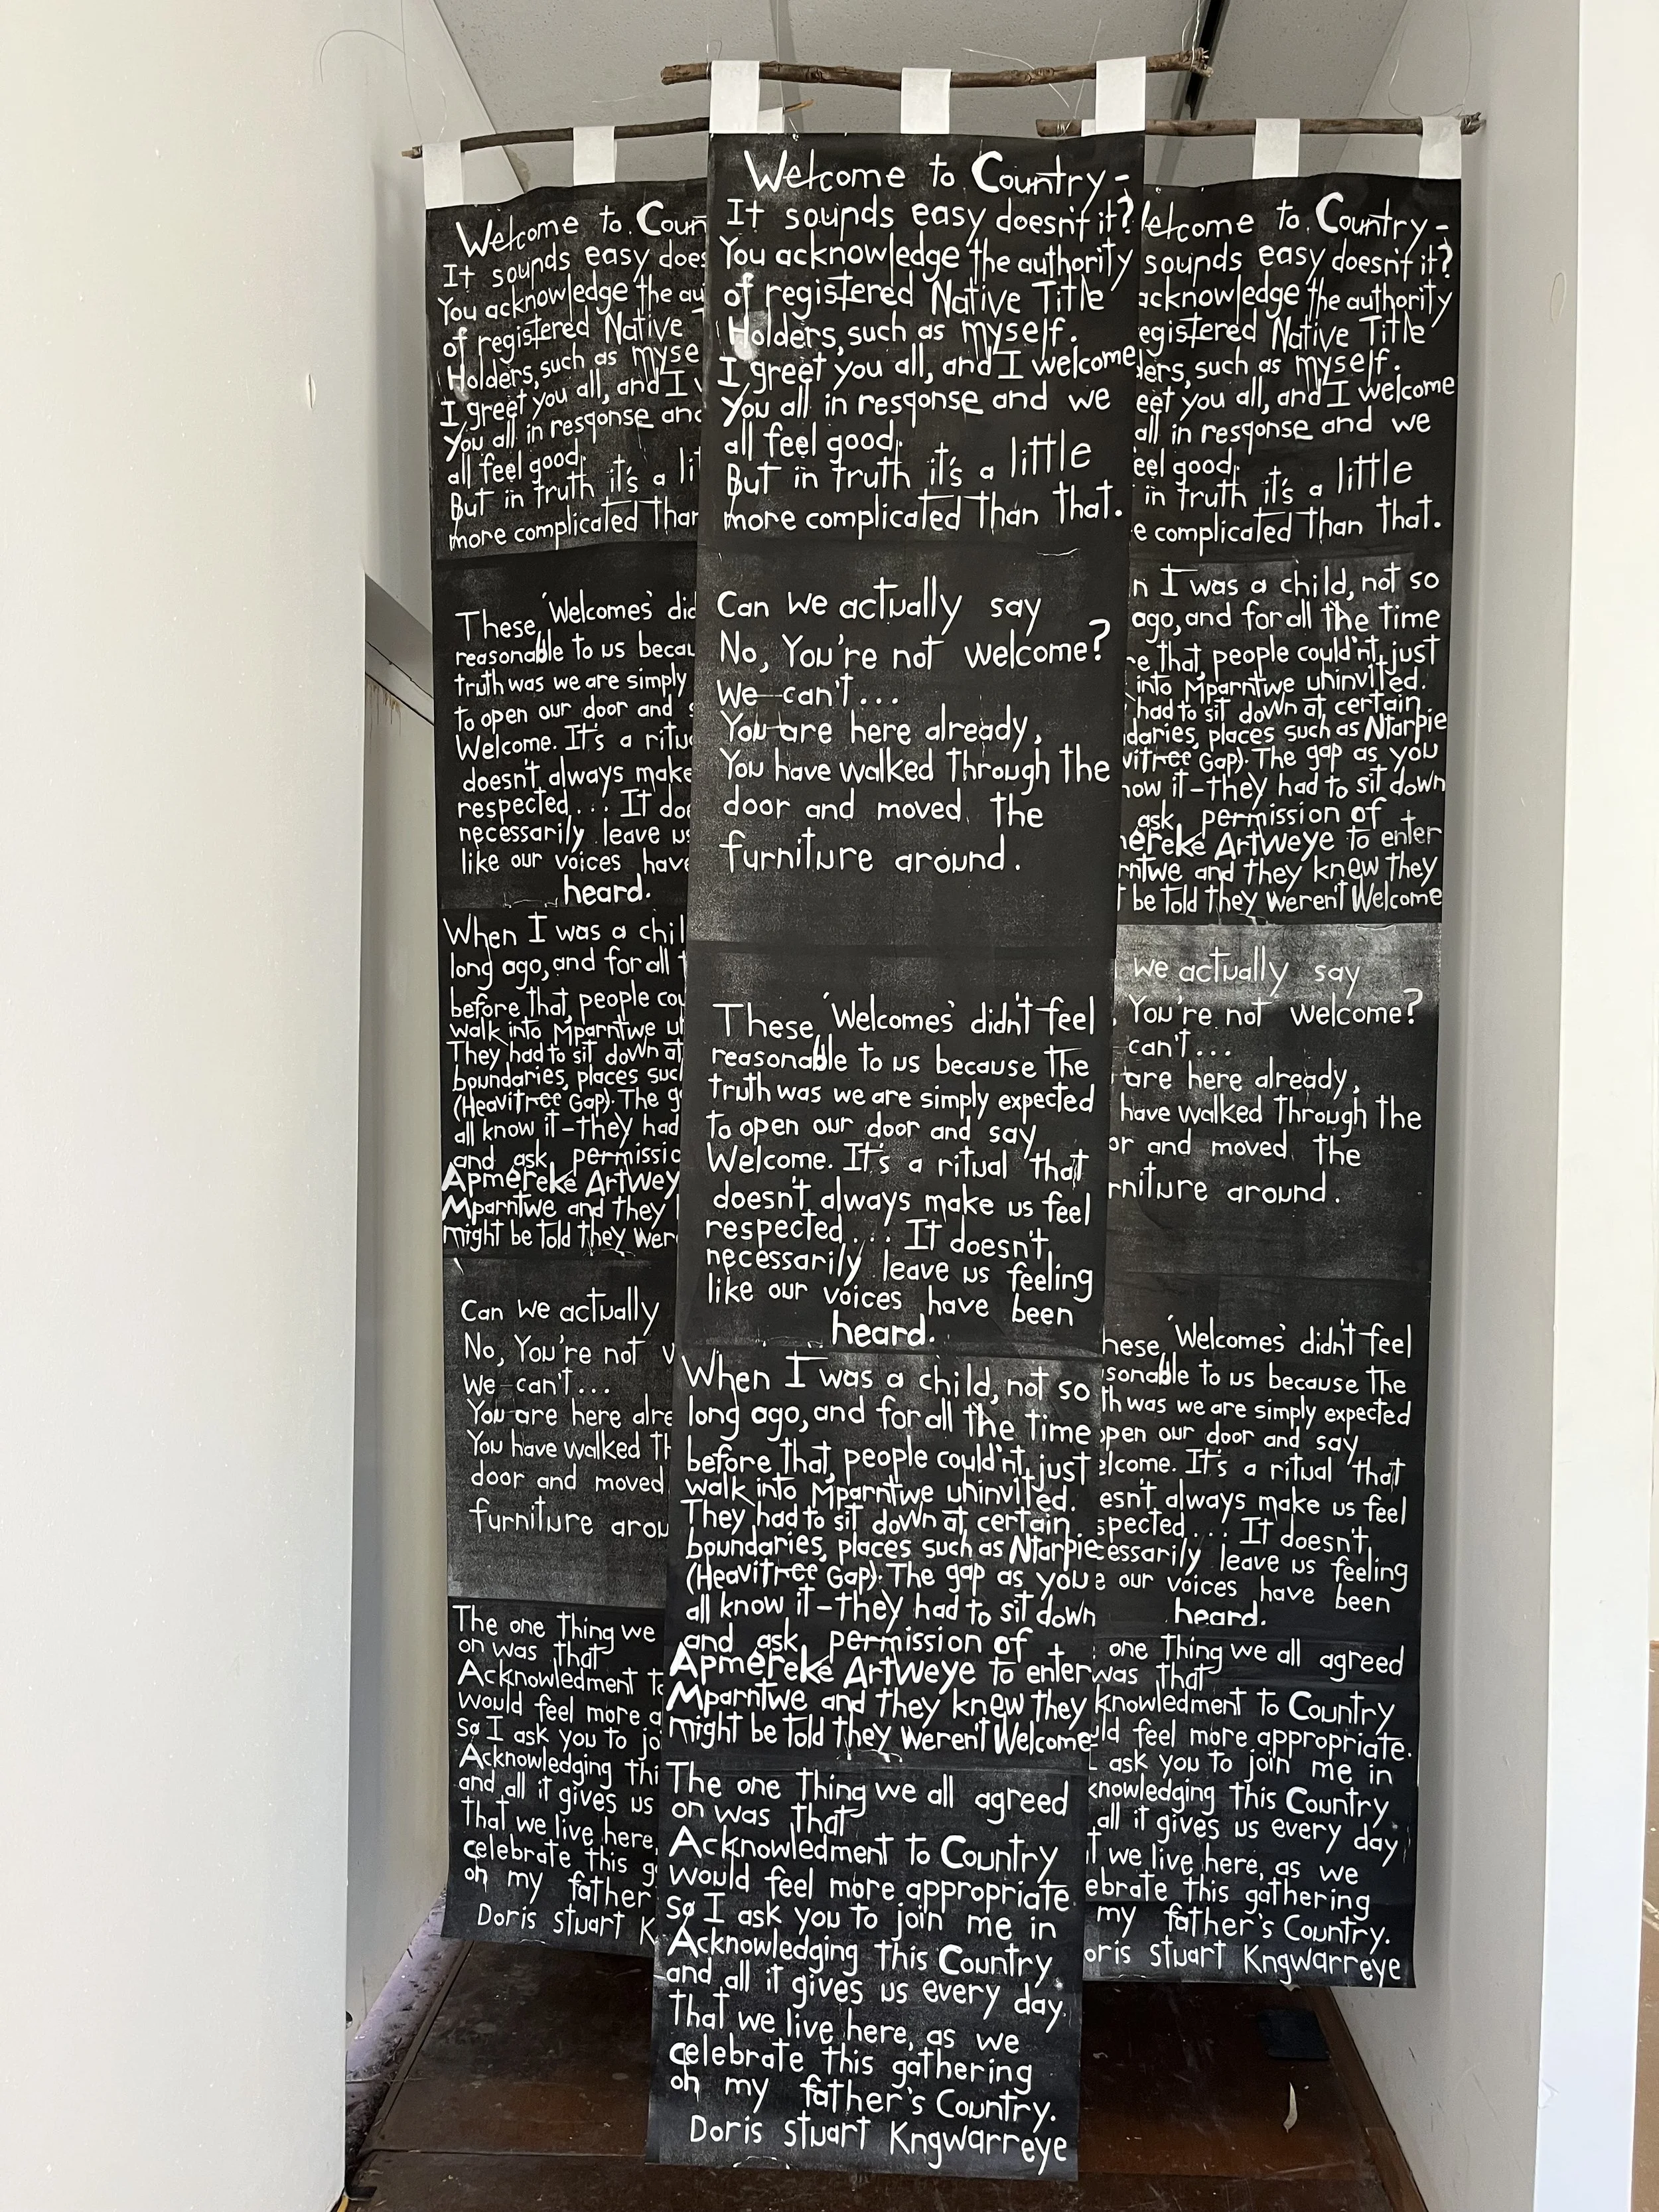 Welcome to Coun
It sounds easy does
You acknowledge the au
of registered Native T
Holders, such as myse
I greet you all, and I w
You all in resqonse and
all feel good.
But in truth it's a lit
more complicated Than
These 'Welcomes' did
reasonable to us becau
truth was we are simply
to open our door and s
Welcome. It's a ritu
doesn't always make
respected... It doe
necessarily leave us
like our voices have
heard.
When I was a chil
long ago, and for all t
before that, people cou
walk into Mparntwe un
They had to sit down at
boundaries, places suc
(Heavitree Gap). The g
all know it – they had
and ask permissio
Apmereke Artwey
Mparntwe and they k
might be told they wer
Can we actually
No, You're not w
We can't...
You are here alre
You have walked Th
door and moved
furniture arou
The one thing we
on was that
Acknowledment to
would feel more a
So I ask you to jo
Acknowledging thi
and all it gives us
That we live here,
celebrate this g
on my father
Doris Stuart K
Welcome to Country -
It sounds easy doesn't it?
You acknowledge the authority
of registered Native Title
Holders, such as myself.
I greet you all, and I welcome
You all in resqonse and we
all feel good.
But in truth it's a little
more complicated Than that.
Can we actually say
No, You're not welcome?
We can't...
You are here already,
You have walked Through the
door and moved the
furniture around.
These 'Welcomes' didn't feel
reasonable to us because the
truth was we are simply expected
to open our door and say
Welcome. It's a ritual that
doesn't always make us feel
respected... It doesn't
necessarily leave us feeling
like our voices have been
heard.
When I was a child, not so
long ago, and for all the time
before that, people couldn't just
walk into Mparntwe uninvited.
They had to sit down at certain
boundaries, places such as Ntarpie
(Heavitree Gap). The gap as you
all know it – they had to sit down
and ask permission of
Apmereke Artweye to enter
Mparntwe and they knew they
might be told they weren't Welcome
The one thing we all agreed
on was that
Acknowledment to Country
would feel more appropriate.
So I ask you to join me in
Acknowledging this Country
and all it gives us every day.
That we live here, as we
celebrate this gathering
on my father's Country.
Doris Stuart Kngwarreye
elcome to Country -
sounds easy doesn't it?
acknowledge the authority
egistered Native Title
ders, such as myself.
eet you all, and I welcome
all in resqonse and we
eel good.
in truth it's a little
e complicated Than that.
n I was a child, not so
ago, and for all the time
re that, people couldn't just
into Mparntwe uninvited.
had to sit down at certain
daries, places such as Ntarpie
vitree Gap). The gap as you
now it – they had to sit down
ask permission of
ereke Artweye to enter
rntwe and they knew they
t be told they weren't Welcome
we actually say
You're not welcome?
can't...
are here already,
have walked Through the
or and moved the
rniture around.
hese 'Welcomes' didn't feel
sonable to us because the
th was we are simply expected
open our door and say
elcome. It's a ritual that
esn't always make us feel
spected... It doesn't
cessarily leave us feeling
e our voices have been
heard.
one thing we all agreed
was that
knowledment to Country
uld feel more appropriate.
I ask you to join me in
knowledging this Country
all it gives us every day
t we live here, as we
ebrate this gathering
my father's Country.
oris Stuart Kngwarreye